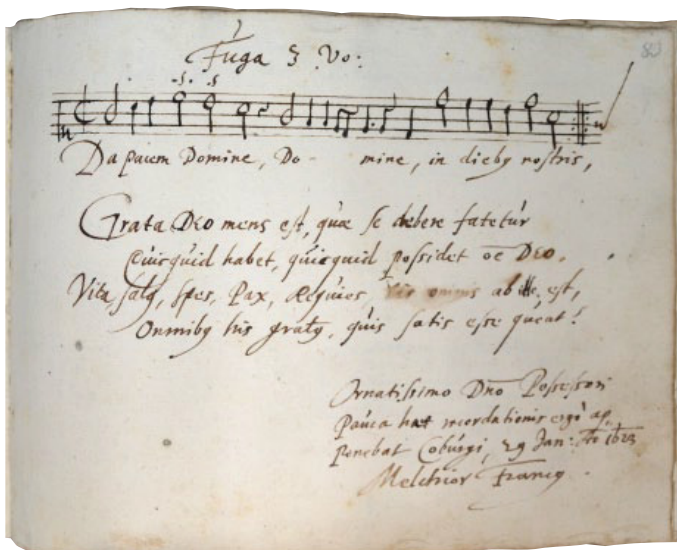 Fuga 3 Vo:
Da pacem Domine, Do- mine, in dieby nostris,
Grata Deo mens est, quæ se debere fatetur
Quicquid habet, quicquid possidet oe Deo.
Vita, salq, spes, Pax, Requies, Vis omnis ab illo est,
Omniby his gratq, quis satis esse queat!
Ornatissimo Dno Possessori
Pauca haec recordationis ergo ap„
penebat Coburgi, 29 Jan: Ao 1623
Melchior Francq.